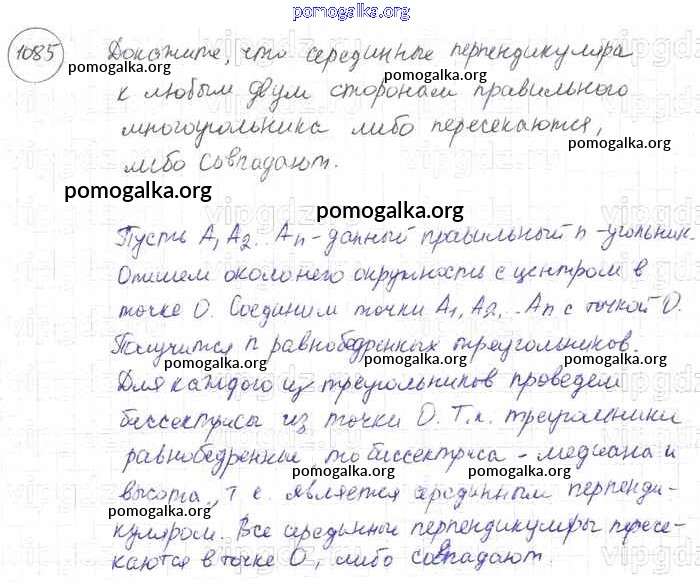 pomogalka.org
1085 Докажите, что серединные перпендикуляра
pomogalka.org pomogalka.org
к любым двум сторонам правильного
многоугольника либо пересекаются,
pomogalka.org
либо совпадают.
pomogalka.org
pomogalka.org
Пусть A₁A₂...Aₙ - данный правильный n-угольник.
Опишем около него окружность с центром в
точке O. Соединим точки A₁, A₂,...Aₙ с точкой O.
pomogalka.org
Получится n равнобедренных треугольников.
pomogalka.org pomogalka.org
Для каждого из треугольников проведем
биссектрисы из точки O. Т.к. треугольники
равнобедренные, то биссектриса - медиана и
pomogalka.org pomogalka.org
высота, т.е. является серединным перпенди-
pomogalka.org
куляром. Все серединные перпендикуляры пересе-
каются в точке O, либо совпадают.